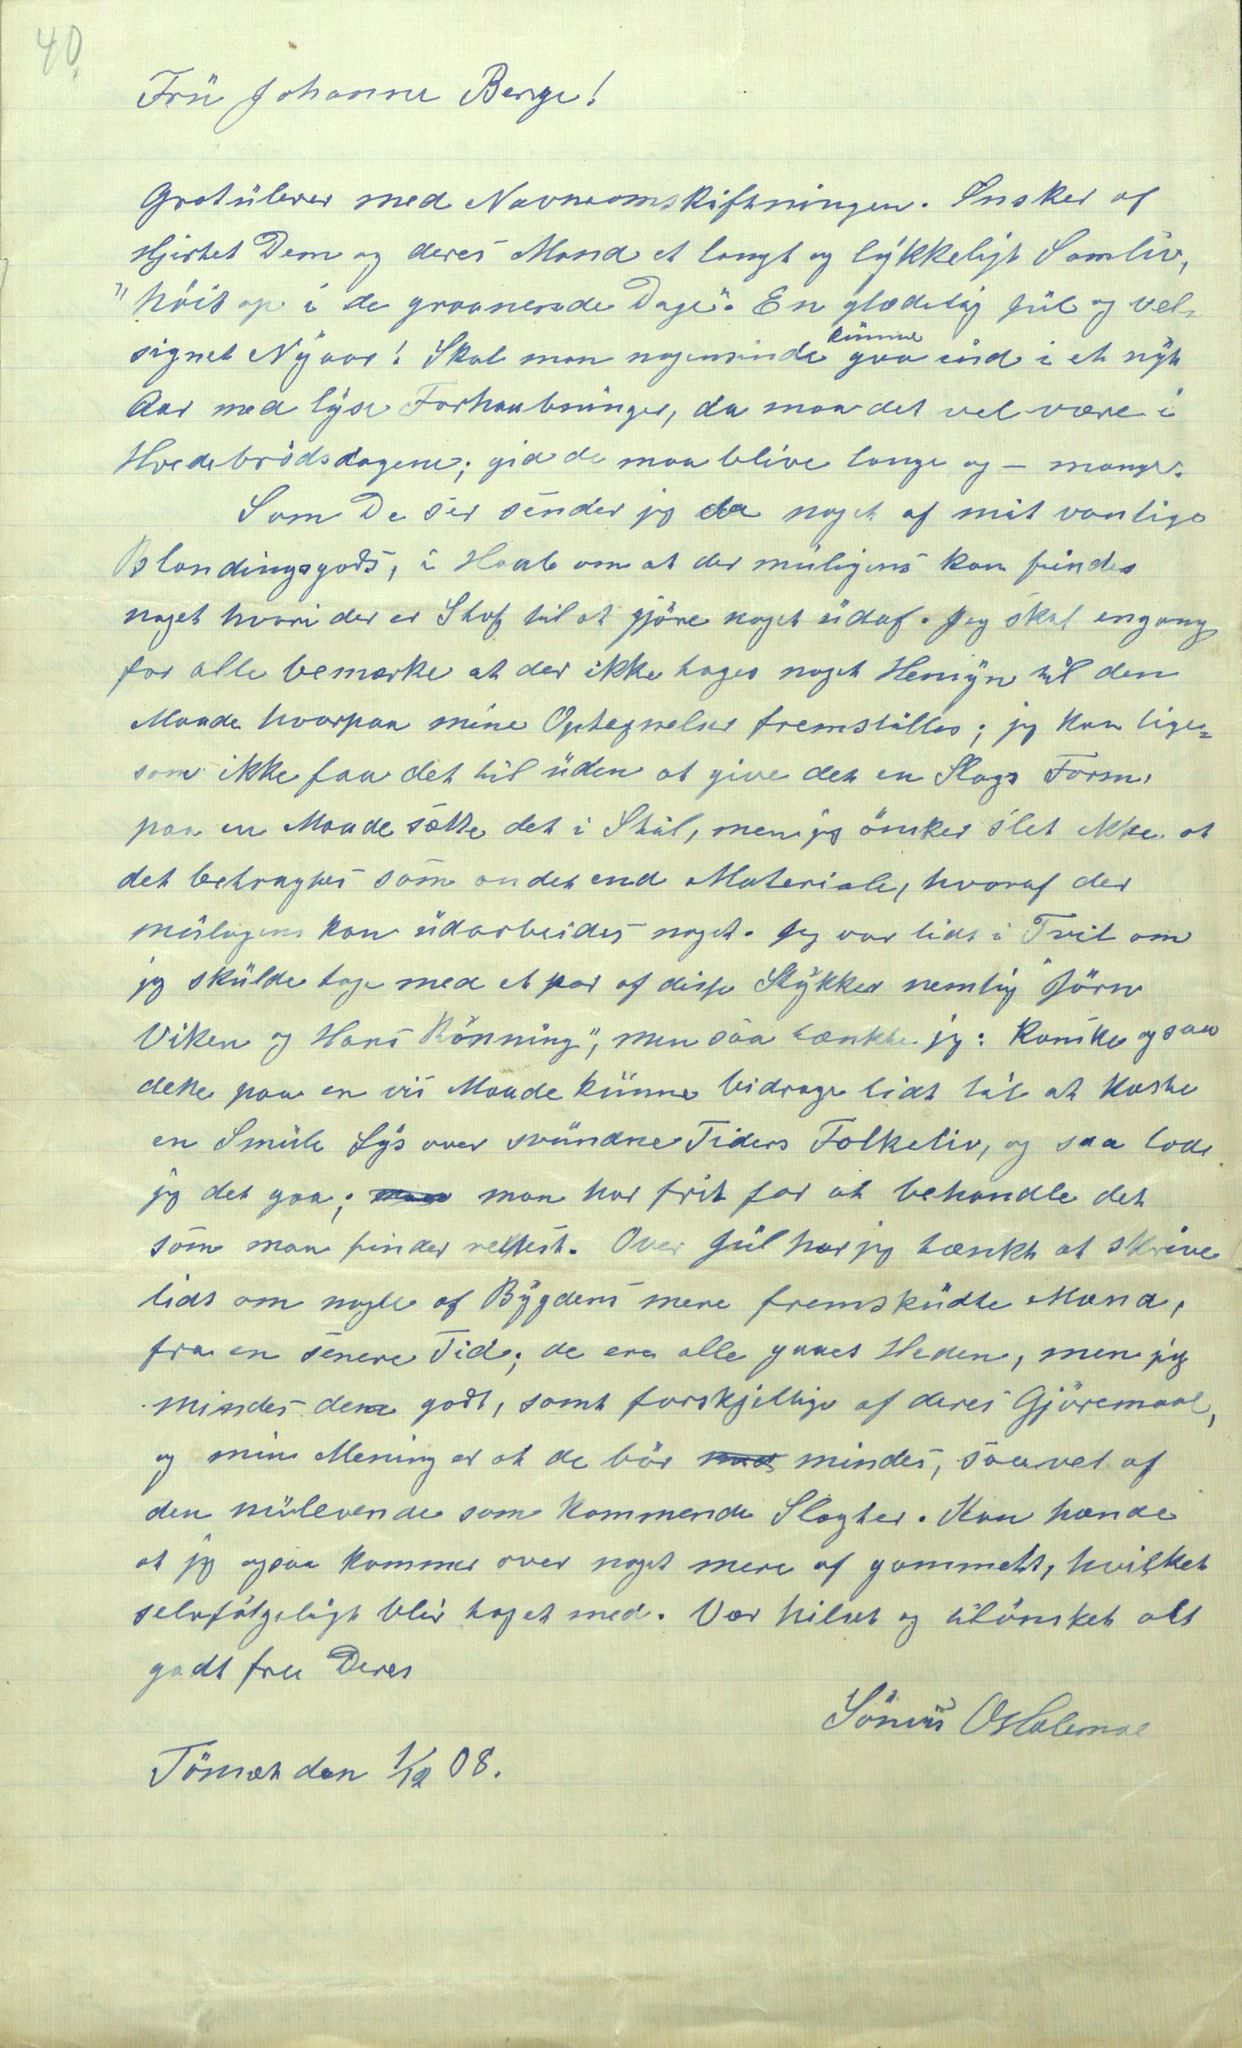 40.
Fru Johanne Berge!
Gratulerer med Navneomskiftningen. Ønsker af
Hjertet Dem og deres Mand et langt og lykkeligt Samliv,
"høit op i de graanende Dage". En glædelig Jul og vel-
signet Nyaar! Skal man nogensinde kunne gaa ind i et nyt
Aar med lyse Forhaabninger, da maa det vel være i
Hvedebrødsdagene; gid de maa blive lange og – mange.
Som De ser sender jeg da noget af mit vanlige
Blandingsgods, i Haab om at der muligens kan findes
noget hvori der er Stof til at gjøre noget udaf. Jeg skal engang
for alle bemærke at der ikke tages noget Hensyn til den
Maade hvorpaa mine Optegnelser fremstilles; jeg kan lige=
som ikke faa det til uden at give det en Slags Form,
paa en Maade sætte det i Stil, men jeg ønsker slet ikke at
det betragtes som andet end Materiale, hvoraf der
muligens kan udarbeides noget. Jeg var lidt i Tvil om
jeg skulde tage med et par af disse Stykker nemlig "Jörn
Viken og Hans Rönning", men saa tænkte jeg: Kanske ogsaa
dette paa en vis Maade kunne bidrage lidt til at kaste
en Smule Lys over svundne Tiders Folkeliv, og saa lod
jeg det gaa; man har frit for at behandle det
som man finder rettest. Over Jul har jeg tænkt at skrive
lidt om nogle af Bygdens mere fremskudte Mænd,
fra en senere Tid; de ere alle gaaet Heden, men jeg
mindes dem godt, samt forskjellige af deres Gjöremaal,
og min Mening er at de bör mindes, saavel af
den nulevende som kommende Slægter. Kan hænde
at jeg ogsaa kommer over noget mere af gammelt, hvilket
selvfölgeligt blir taget med. Vær hilset og tilönsket alt
godt fra Deres
Tönset den 1/12 08.